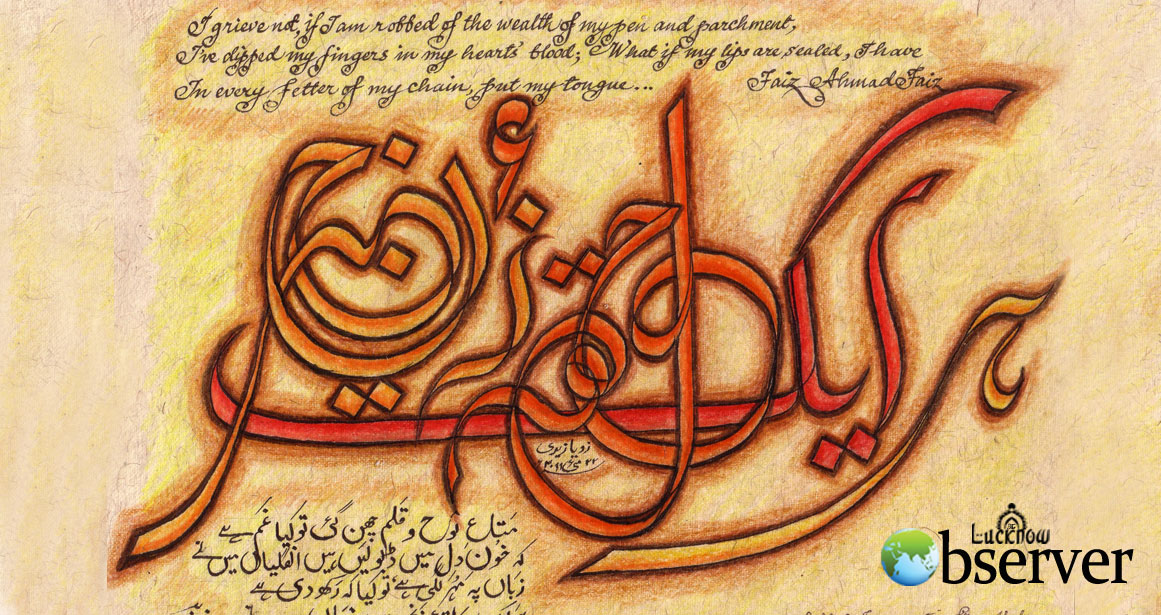 I grieve not, if I am robbed of the wealth of my pen and parchment,
I've dipped my fingers in my heart's blood; What if my lips are sealed, I have
In every fetter of my chain, put my tongue... Faiz Ahmad Faiz
ہر ایک حلقۂ زنجیر
زویا زیدی
متاع لوح و قلم چھن گئی تو کیا غم ہے
کہ خون دل میں ڈبو لیں ہیں انگلیاں میں نے
زباں پہ مہر لگی ہے تو کیا کہ رکھ دی ہے
The Lucknow
Observer